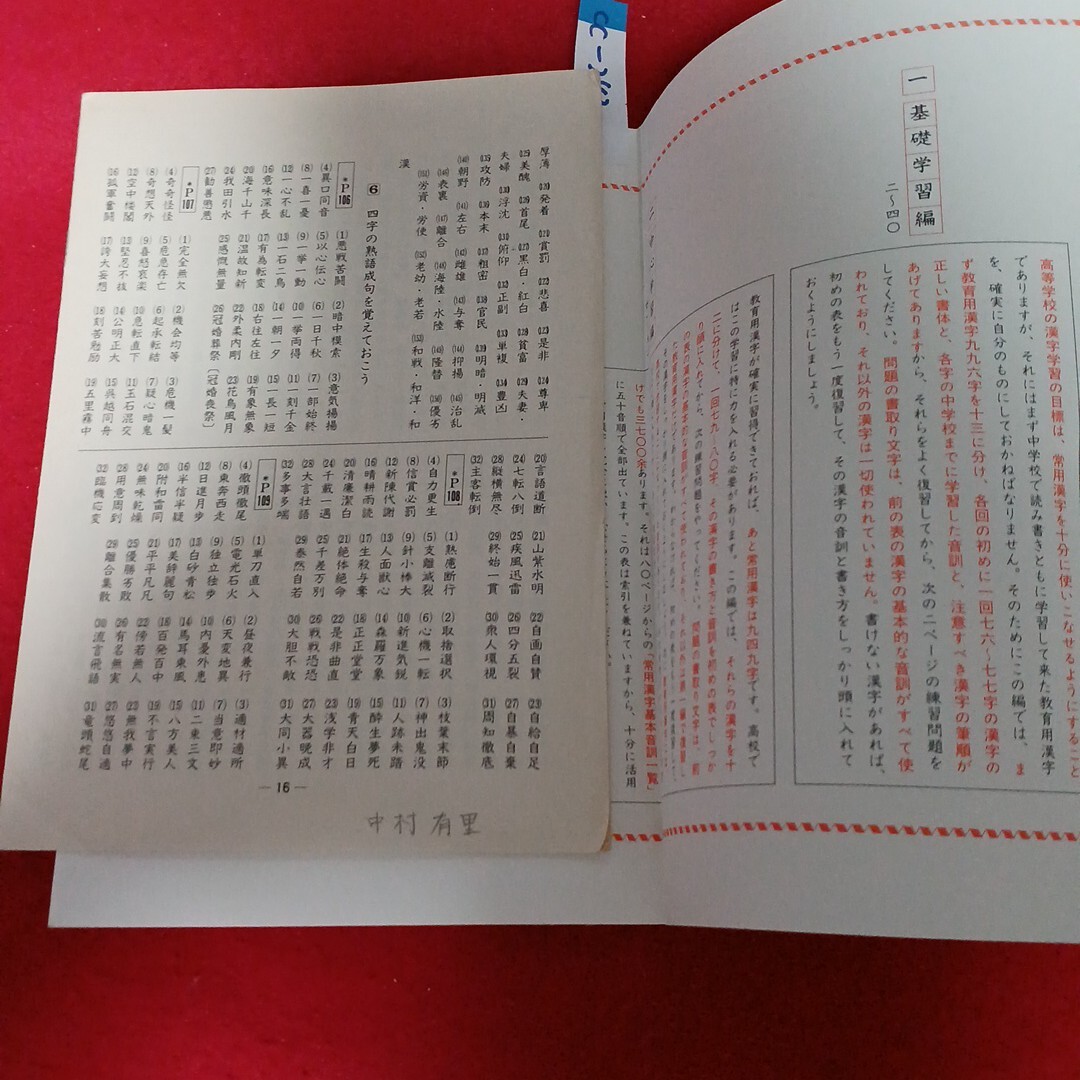 一 基礎学習編
二〜四〇
高等学校の漢字学習の目標は、常用漢字を十分に使いこなせるようにすること
でありますが、それにはまず中学校で読み書きともに学習して来た教育用漢字
を、確実に自分のものにしておかねばなりません。そのためにこの編では、ま
ず教育用漢字九九六字を十三に分け、各回の初めに一回七六〜七七字の漢字の
正しい書体と、各字の中学校までに学習した音訓と、注意すべき漢字の筆順が
あげてありますから、それらをよく復習してから、次の二ページの練習問題を
してください。問題の書取り文字は、前の表の漢字の基本的な音訓がすべて使
われており、それ以外の漢字は一切使われていません。書けない漢字があれば、
初めの表をもう一度復習して、その漢字の音訓と書き方をしっかり頭に入れて
おくようにしましょう。
教育用漢字が確実に習得できておれば、あと常用漢字は九四九字です。高校で
はこの学習に特に力を入れる必要があります。この編では、それらの漢字を十
二に分けて、一回七九〜八〇字、その漢字の書き方と音訓を初めの表でしっか
り頭に入れてから、次の練習問題をやってください。問題の書取り文字は、前
けでも三七〇〇余あります。それは八〇ページからの「常用漢字基本音訓一覧」
に五十音順で全部出ています。この表は索引を兼ねていますから、十分に活用
厚薄 ⒆発着 ⒇賞罰 (22)悲喜 (23)是非 (24)尊卑
(25)美醜 (26)首尾 (27)黒白・紅白 (28)貧富 (29)夫妻・
夫婦 (30)浮沈 (31)俯仰 (32)正副 (33)単複 (34)豊凶
(35)攻防 (36)本末 (37)粗密 (38)官民 (39)明暗・明滅
(40)朝野 (41)左右 (42)雌雄 (43)与奪 (44)抑揚 (45)治乱
(46)表裏 (47)離合 (48)海陸・水陸 (49)隆替 (50)優劣
(51)労資・労使 (52)老幼・老若 (53)和戦・和洋・和
漢
6 四字の熟語成句を覚えておこう
•P106
(1)悪戦苦闘 (2)暗中模索 (3)意気揚揚
(4)異口同音 (5)以心伝心 (6)一日千秋 (7)一部始終
(8)一喜一憂 (9)一挙一動 (10)一挙両得 (11)一刻千金
(12)一心不乱 (13)一石二鳥 (14)一朝一夕 (15)一長一短
(16)意味深長 (17)有為転変 (18)右往左往 (19)有象無象
(20)海千山千 (21)温故知新 (22)外柔内剛 (23)花鳥風月
(24)我田引水 (25)感慨無量 (26)冠婚葬祭〔冠婚喪祭〕
(27)勧善懲悪
•P107
(1)完全無欠 (2)機会均等 (3)危機一髪
(4)奇奇怪怪 (5)危急存亡 (6)起承転結 (7)疑心暗鬼
(8)奇想天外 (9)喜怒哀楽 (10)急転直下 (11)玉石混交
(12)空中楼閣 (13)堅忍不抜 (14)公明正大 (15)呉越同舟
(16)孤軍奮闘 (17)誇大妄想 (18)刻苦勉励 (19)五里霧中
(20)言語道断 (21)山紫水明 (22)自画自賛 (23)自給自足
(24)七転八倒 (25)疾風迅雷 (26)四分五裂 (27)自暴自棄
(28)縦横無尽 (29)終始一貫 (30)衆人環視 (31)周知徹底
(32)主客転倒
•P108
(1)熟慮断行 (2)取捨選択 (3)枝葉末節
(4)自力更生 (5)支離滅裂 (6)心機一転 (7)神出鬼没
(8)信賞必罰 (9)針小棒大 (10)新進気鋭 (11)人跡未踏
(12)新陳代謝 (13)人面獣心 (14)森羅万象 (15)酔生夢死
(16)晴耕雨読 (17)生殺与奪 (18)正正堂堂 (19)青天白日
(20)清廉潔白 (21)絶体絶命 (22)是非曲直 (23)浅学非才
(24)千載一遇 (25)千差万別 (26)戦戦恐恐 (27)大器晩成
(28)大言壮語 (29)泰然自若 (30)大胆不敵 (31)大同小異
(32)多事多端
•P109
(1)単刀直入 (2)昼夜兼行 (3)適材適所
(4)徹頭徹尾 (5)電光石火 (6)天変地異 (7)当意即妙
(8)東奔西走 (9)独立独歩 (10)内憂外患 (11)二束三文
(12)日進月歩 (13)白砂青松 (14)馬耳東風 (15)八方美人
(16)半信半疑 (17)美辞麗句 (18)百発百中 (19)不言実行
(20)附和雷同 (21)平平凡凡 (22)傍若無人 (23)無我夢中
(24)無味乾燥 (25)優勝劣敗 (26)有名無実 (27)悠悠自適
(28)用意周到 (29)離合集散 (30)流言飛語 (31)竜頭蛇尾
(32)臨機応変
—16—
中村 有里